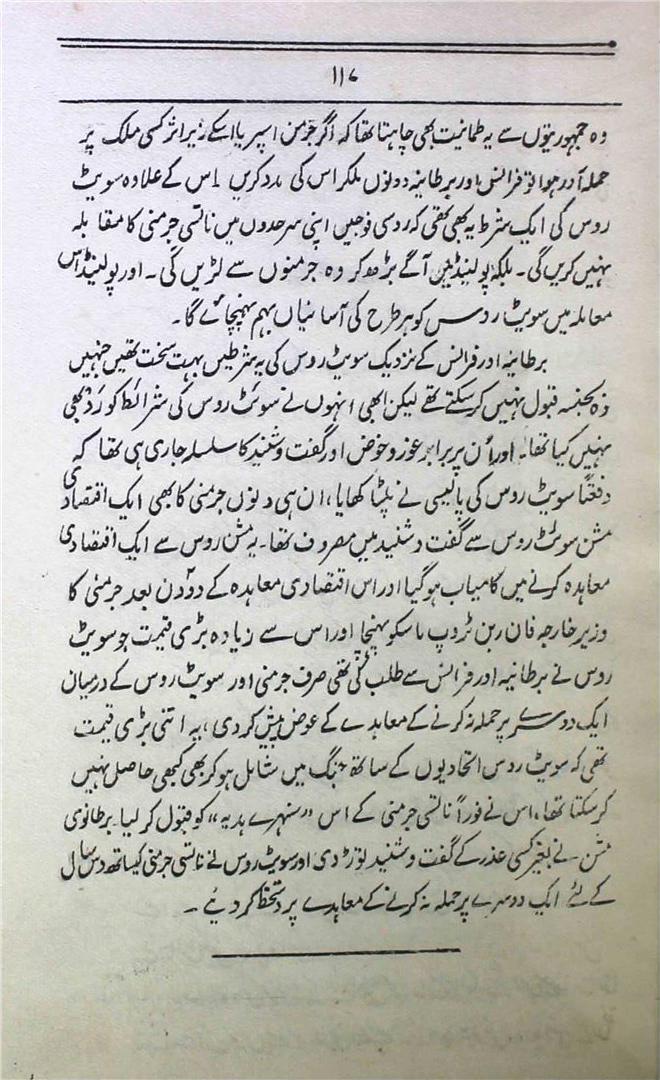 ۱۱۷
وہ جمہوریتوں سے یہ طمانیت بھی چاہتا تھا کہ اگر جرمن اسپر یا اسکے زیر اثر کسی ملک پر
حملہ آور ہوا تو فرانس اور برطانیہ دونوں ملکر اس کی مدد کریں اس کے علاوہ سویٹ
روس کی ایک شرط یہ بھی تھی کہ روسی فوجیں اپنی سرحدوں میں ناتسی جرمنی کا مقابلہ
نہیں کریں گی۔ بلکہ پولینڈ میں آگے بڑھ کر وہ جرمنوں سے لڑیں گی۔ اور پولینڈ اس
معاملہ میں سویٹ روس کو ہر طرح کی آسانیاں بہم پہنچائے گا۔
برطانیہ اور فرانس کے نزدیک سویٹ روس کی یہ شرطیں بہت سخت تھیں جنہیں
وہ بجنسہ قبول نہیں کر سکتے تھے لیکن ابھی انہوں نے سوئٹ روس کی شرائط کو رَد بھی
نہیں کیا تھا۔ اور اُن پر برابر غور و خوض اور گفت و شنید کا سلسلہ جاری ہی تھا کہ
دفعتًا سویٹ روس کی پالیسی نے پلٹا کھایا، ان ہی دنوں جرمنی کا بھی ایک اقتصادی
مشن سوئٹ روس سے گفت و شنید میں مصروف تھا۔ یہ مشن روس سے ایک اقتصادی
معاہدہ کرنے میں کامیاب ہو گیا اور اس اقتصادی معاہدہ کے دو دن بعد جرمنی کا
وزیر خارجہ فان ربن ٹروپ ماسکو پہنچا اور اس سے زیادہ بڑی قیمت جو سویٹ
روس نے برطانیہ اور فرانس سے طلب کی تھی صرف جرمنی اور سویٹ روس کے درمیان
ایک دوسرے پر حملہ نہ کرنے کے معاہدے کے عوض پیش کر دی، یہ اتنی بڑی قیمت
تھی کہ سویٹ روس اتحادیوں کے ساتھ جنگ میں شامل ہو کر بھی کبھی حاصل نہیں
کر سکتا تھا، اس نے فوراً ناتسی جرمنی کے اس "سنہرے ہدیہ" کو قبول کر لیا۔ برطانوی
مشن نے بغیر کسی عذر کے گفت و شنید توڑ دی اور سویٹ روس نے ناتسی جرمنی کیساتھ دس سال
کے لئے ایک دوسرے پر حملہ نہ کرنے کے معاہدے پر دستخط کر دیئے۔